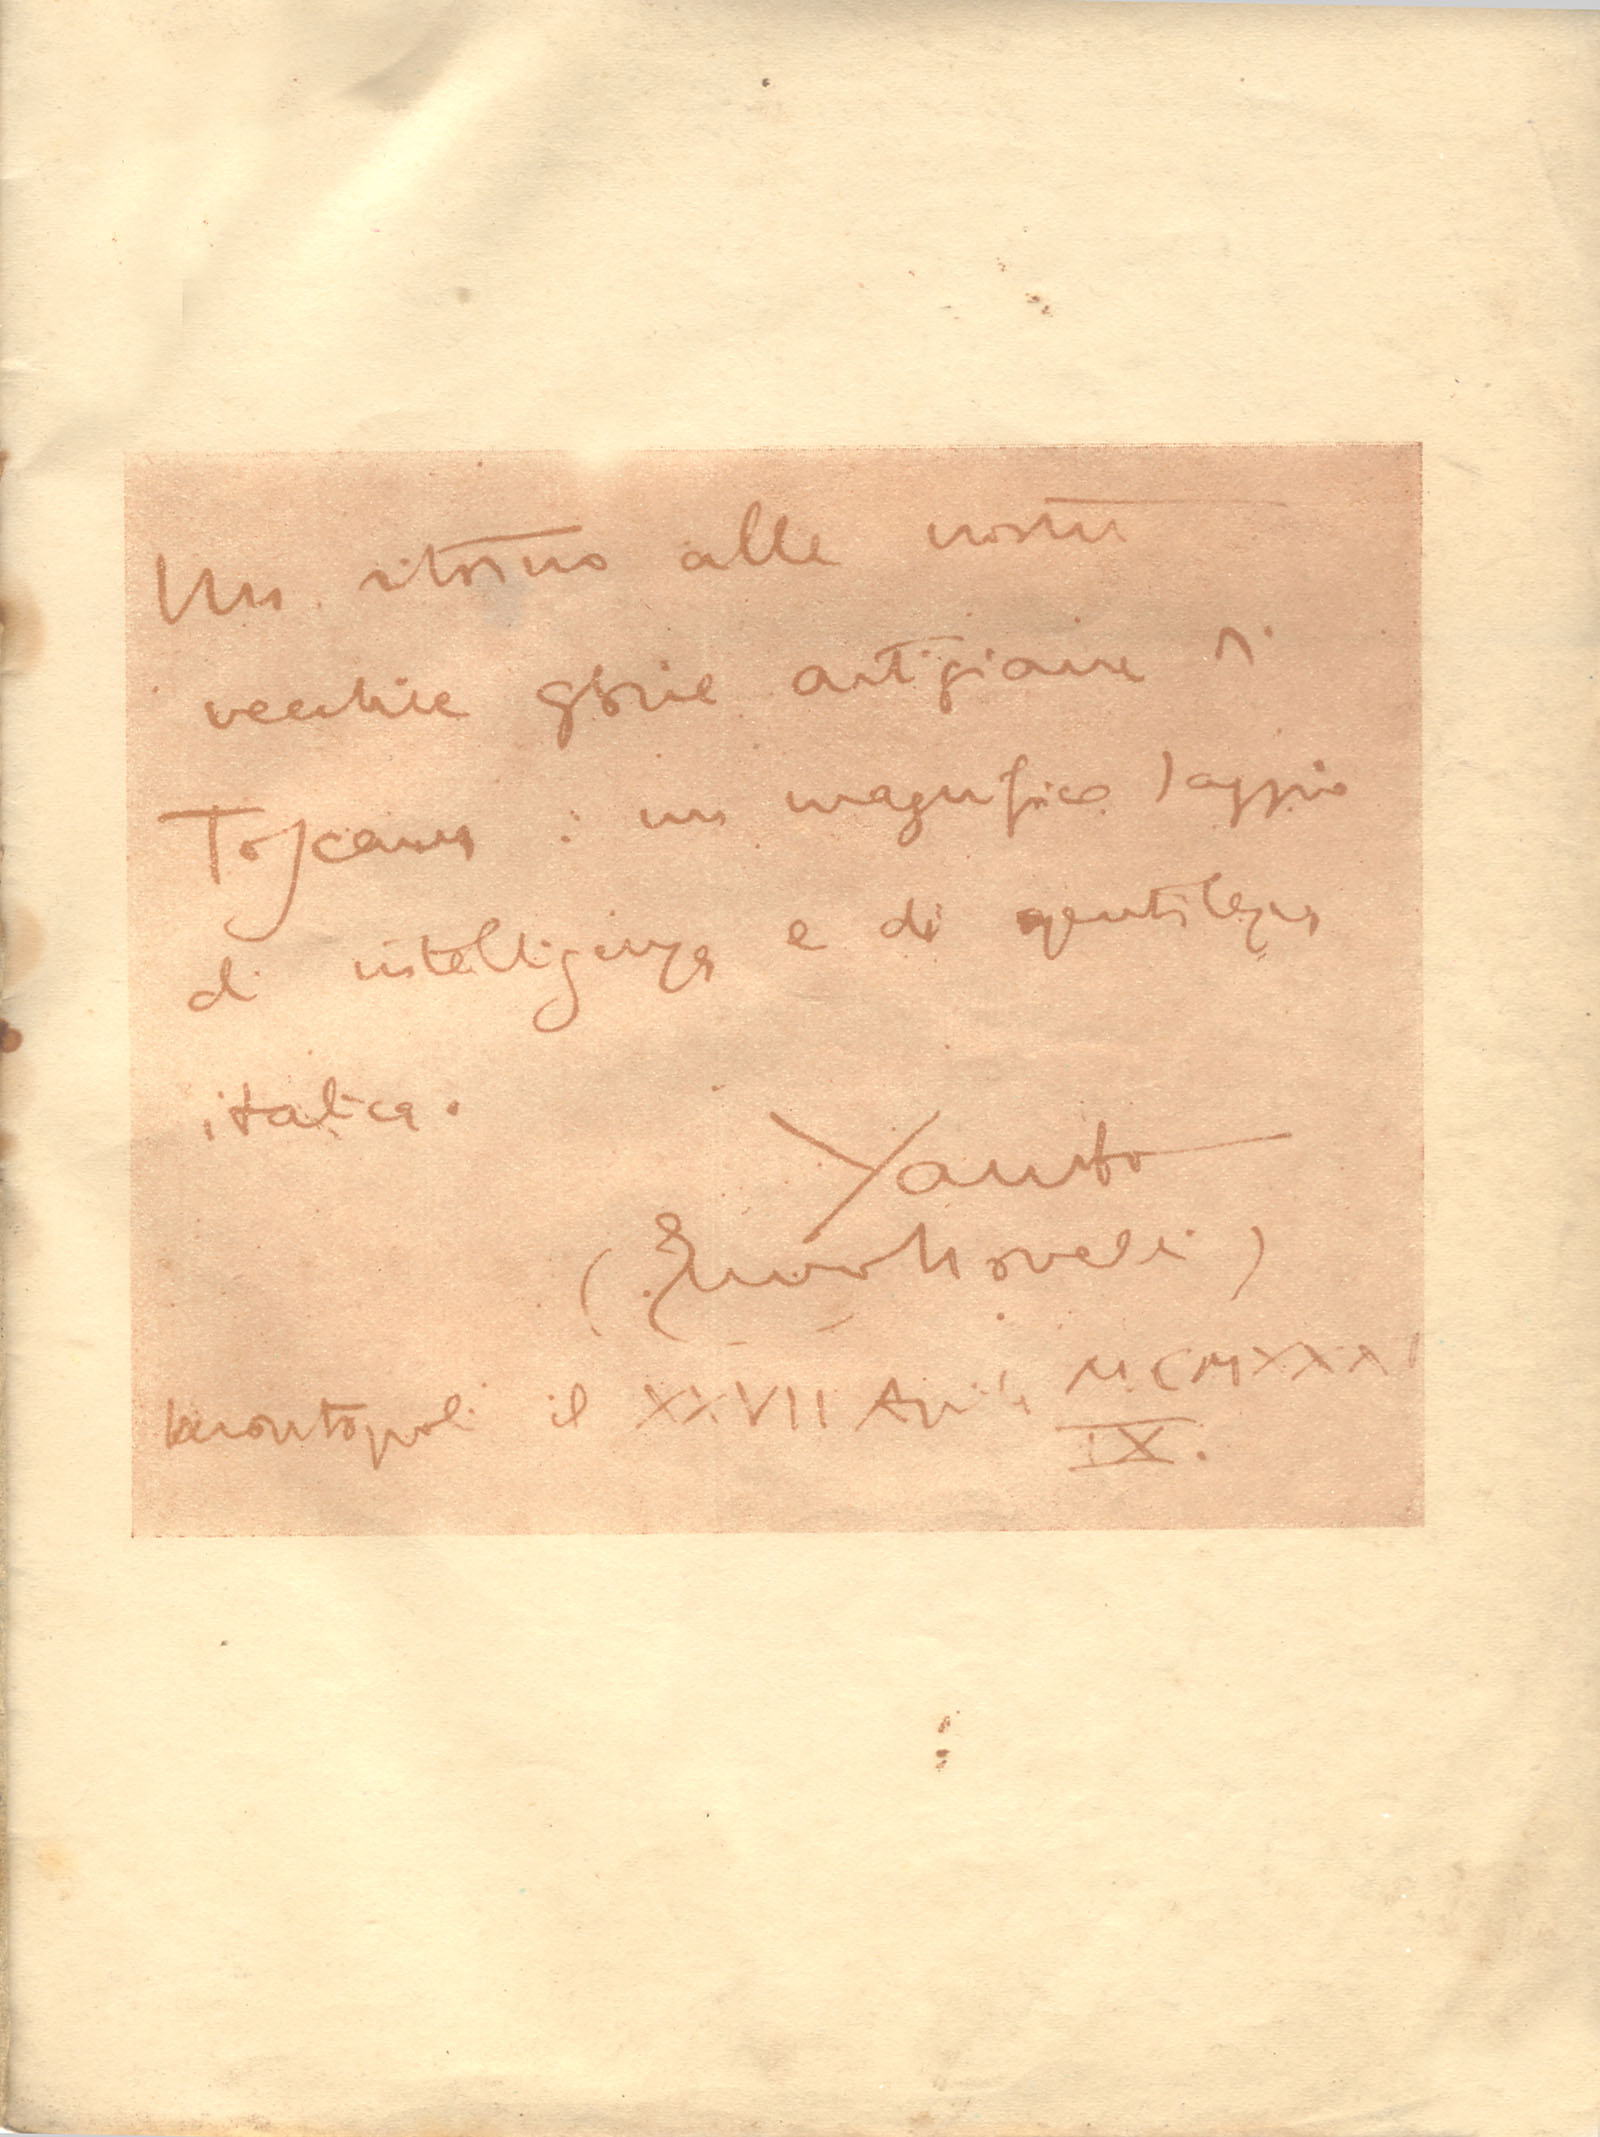 Un ritorno alle nostre
vecchie glorie artigiane di
Toscana: un magnifico saggio
di intelligenza e di gentilezza
italica.
Yambo
(Enrico Novelli)
Montopoli il XXVII Aprile MCMXXXI
IX.